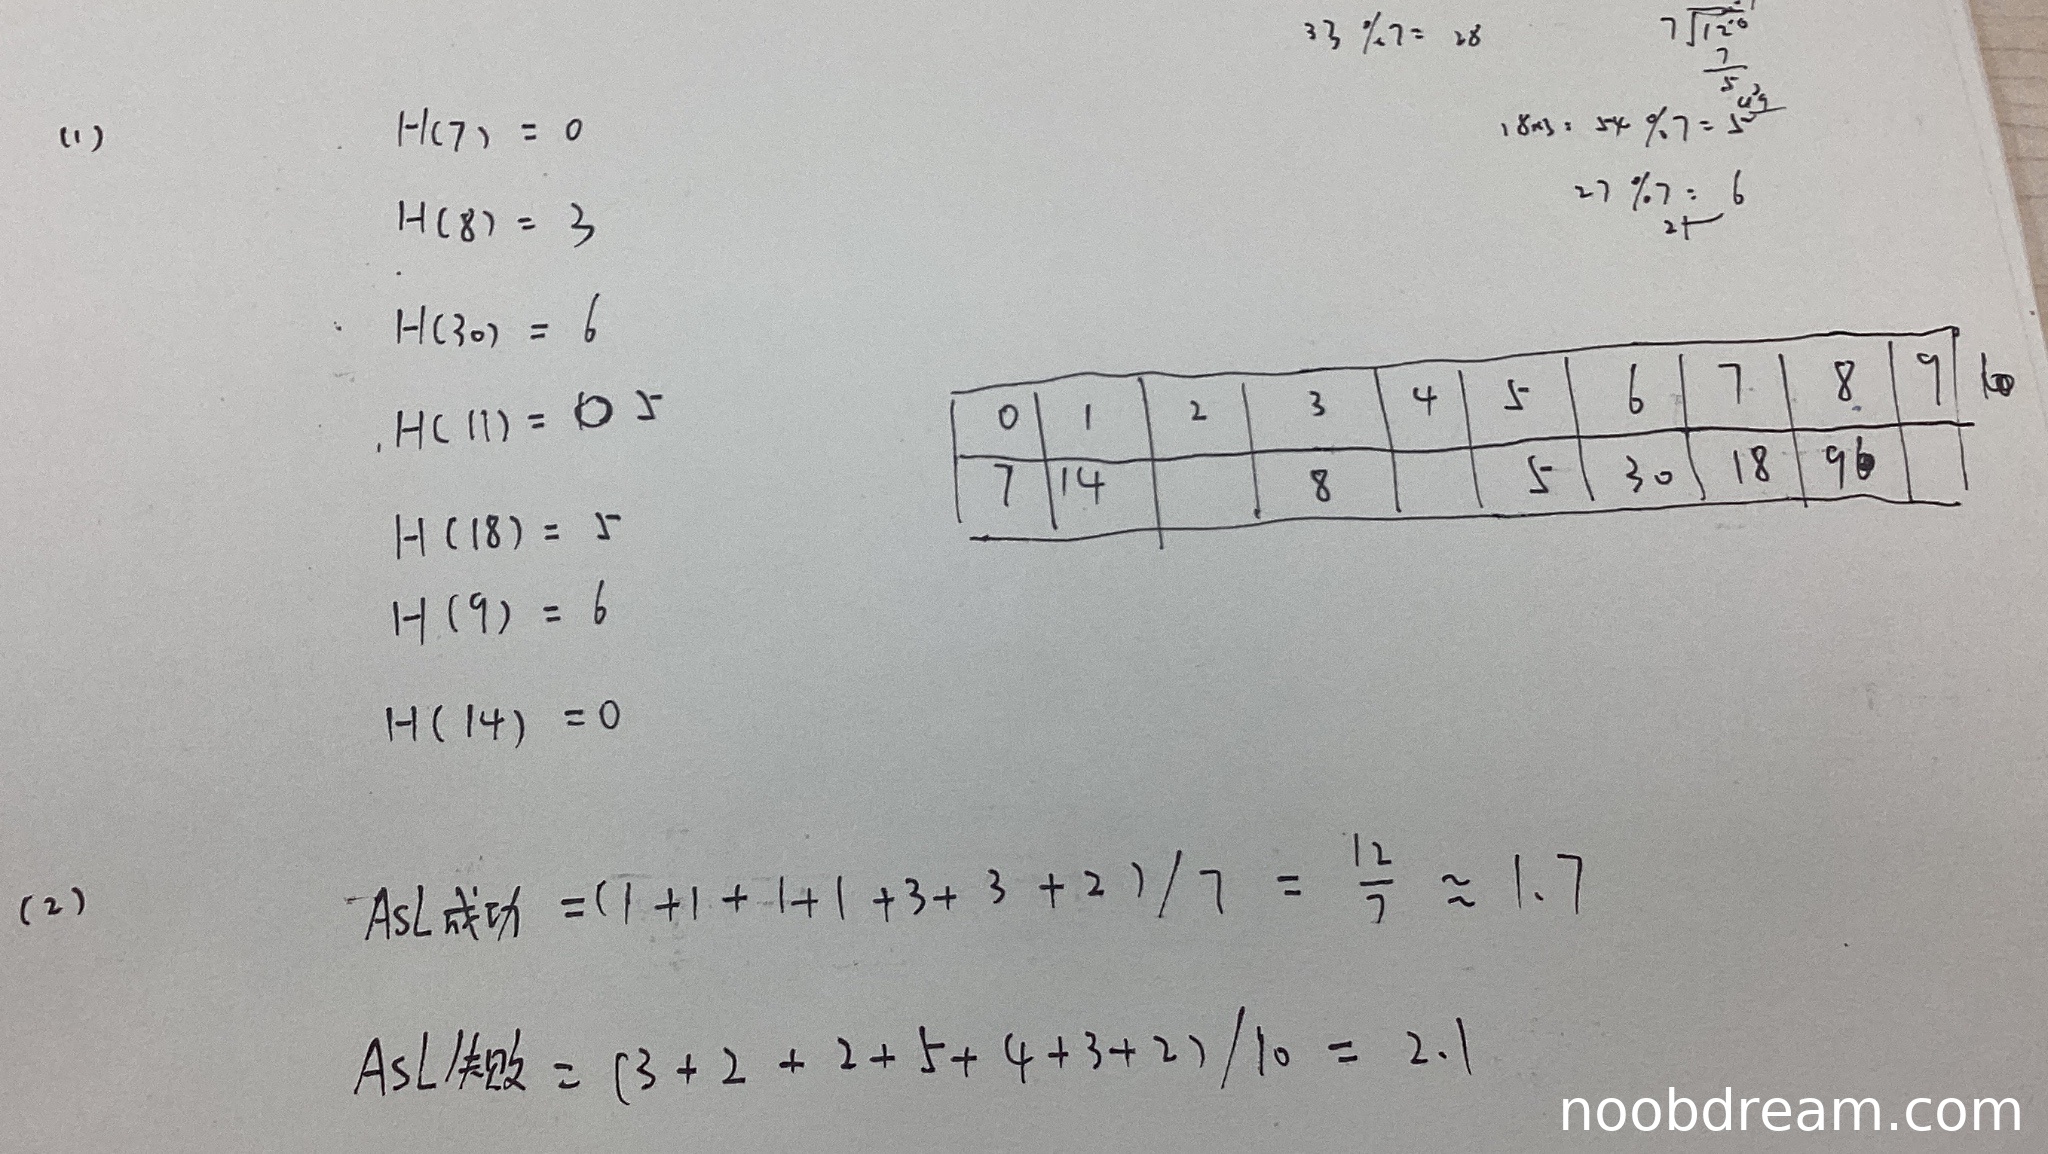 33 %7= 28
7
5
18×3= 54 %7 = 5
49
27 %7 = 6
21
(1)
H(7) = 0
H(8) = 3
H(30) = 6
H(11) = 5
H(18) = 5
H(9) = 6
H(14) = 0
0 1 2 3 4 5 6 7 8 9
7 14 8 5 30 18 9
(2)
ASL成功 =(1+1+1+1+3+3+2)/7 = 12/7 ≈ 1.7
ASL失败 = (3+2+2+5+4+3+2)/10 = 2.1
noobdream.com